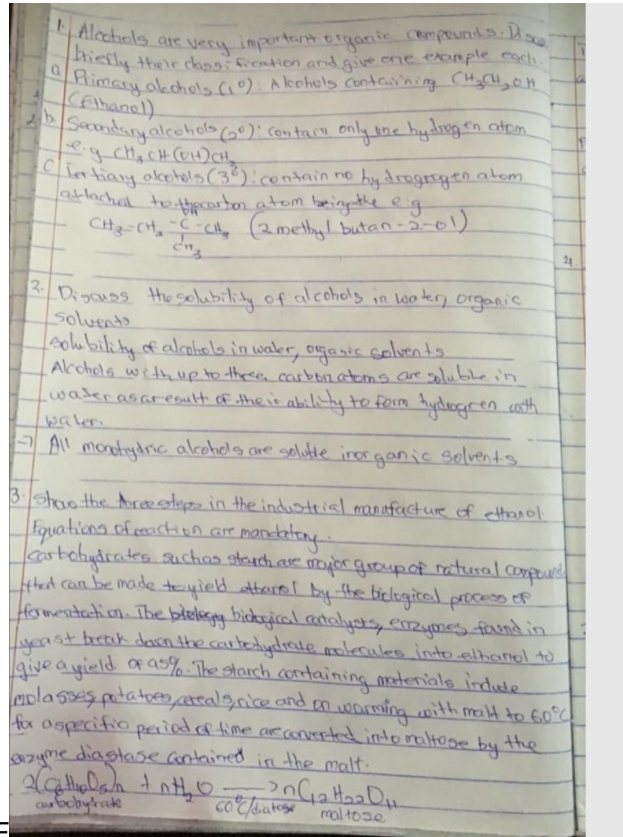 1. Alcohols are very important organic compounds. Discu
briefly their classification and give one example each.
a Primary alcohols (1°): Alcohols containing CH3CH2OH
(Ethanol)
b. Secondary alcohols (2°): contain only one hydrogen atom
e.g CH3CH(OH)CH3
C Tertiary alcohols (3°): contain no hydrogrogen atom
attached to the carbon atom being the e g
OH
CH3-CH2-C-CH3 (2 methyl butan-2-ol)
CH3
2. Discuss the solubility of alcohols in water, organic
solvents
solubility of alcohols in water, organic solvents
Alcohols with up to three carbon atoms are soluble in
water as a result of their ability to form hydrogren with
water.
→ All monohydric alcohols are soluble inorganic solvents
3. Show the three steps in the industrial manufacture of ethanol.
Equations of reaction are mandatory.
Carbohydrates such as starch are major group of natural compound
that can be made to yield ethanol by the biological process of
fermentation. The biological catalysts, enzymes found in
yeast break down the carbohydrate molecules into ethanol to
give a yield of 95%. The starch containing materials include
molasses, potatoes, cereals, rice and on warming with malt to 60°C
for a specific period of time are converted into maltose by the
enzyme diastase contained in the malt.
2(C6H10O5)n + nH2O → nC12H22O11
carbohydrate 60°C/diatase maltose